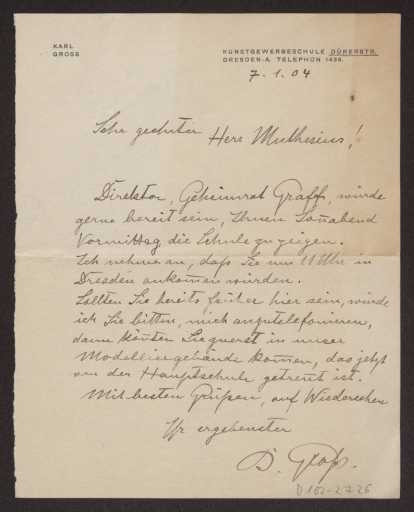 KARL
GROSS
KUNSTGEWERBESCHULE DÜRERSTR.
DRESDEN-A. TELEPHON 1436.
7. 1. 04
Sehr geehrter Herr Muthesius!
Direktor, Geheimrat Graff, würde
gerne bereit sein, Ihnen Sonnabend
Vormittag die Schule zu zeigen.
Ich nehme an, daß Sie um 11 Uhr in
Dresden ankommen würden.
Sollten Sie bereits früher hier sein, würde
ich Sie bitten, mich anzutelefonieren,
dann könten Sie zuerst in unser
Modelliergebäude kommen, das jetzt
von der Hauptschule getrennt ist.
Mit besten Grüßen, auf Wiedersehen
Ihr ergebenster
K. Groß.
D 102-2726